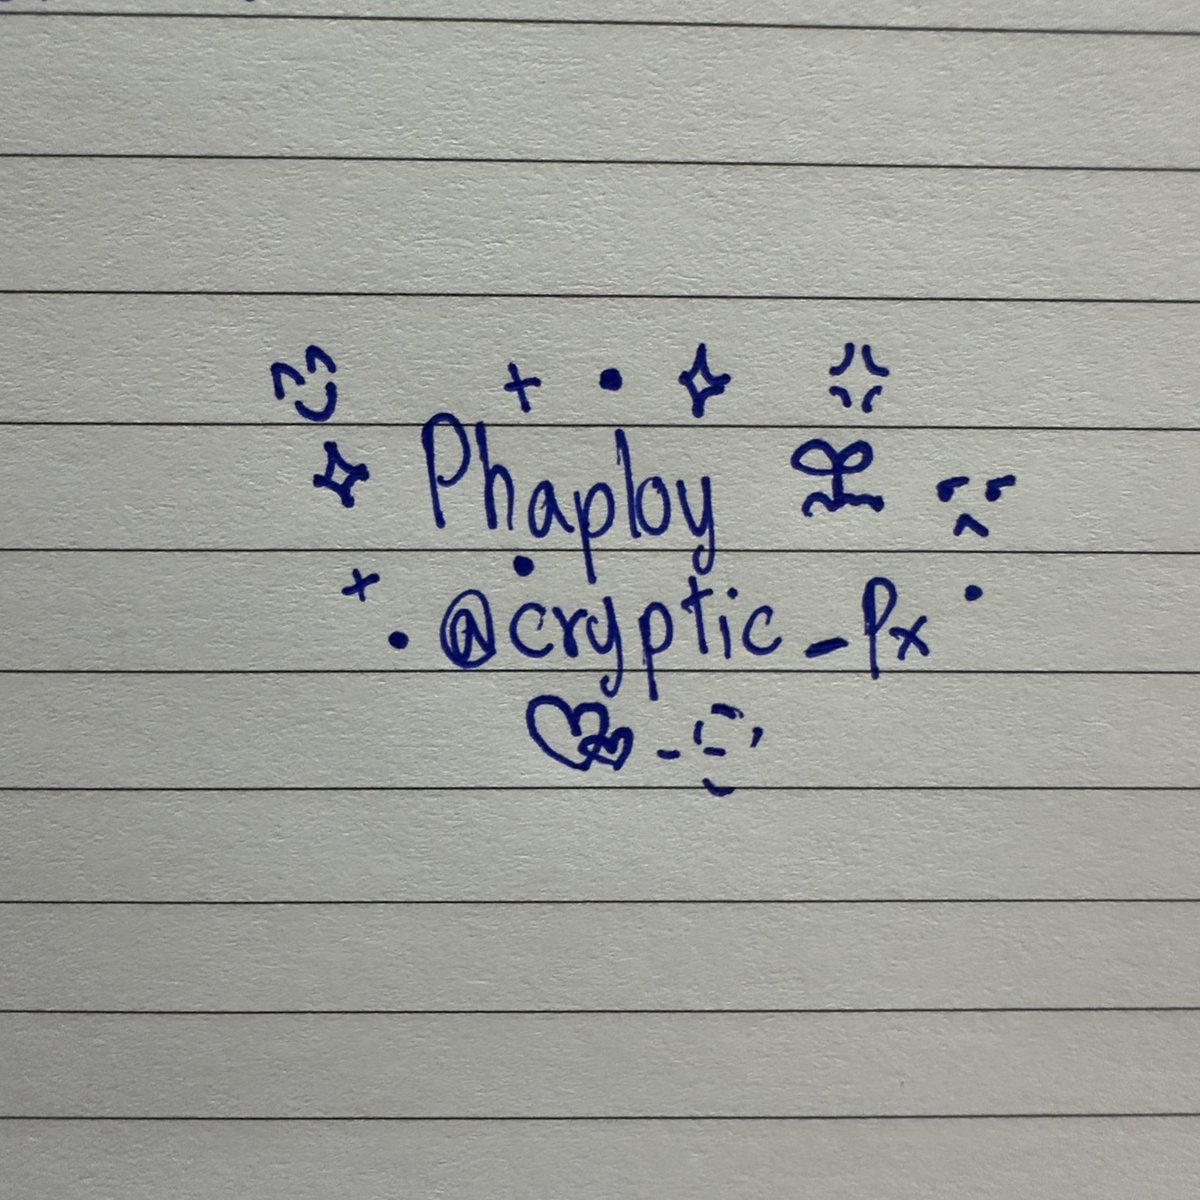 Phaploy
@cryptic_Px